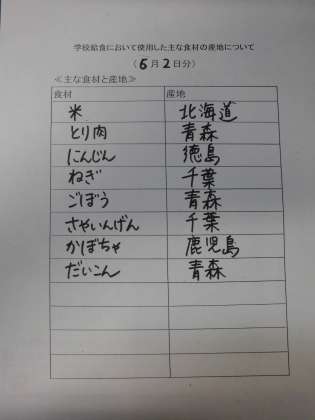 学校給食において使用した主な食材の産地について
（6月2日分）
≪主な食材と産地≫
食材 産地
米 北海道
とり肉 青森
にんじん 徳島
ねぎ 千葉
ごぼう 青森
さやいんげん 千葉
かぼちゃ 鹿児島
だいこん 青森